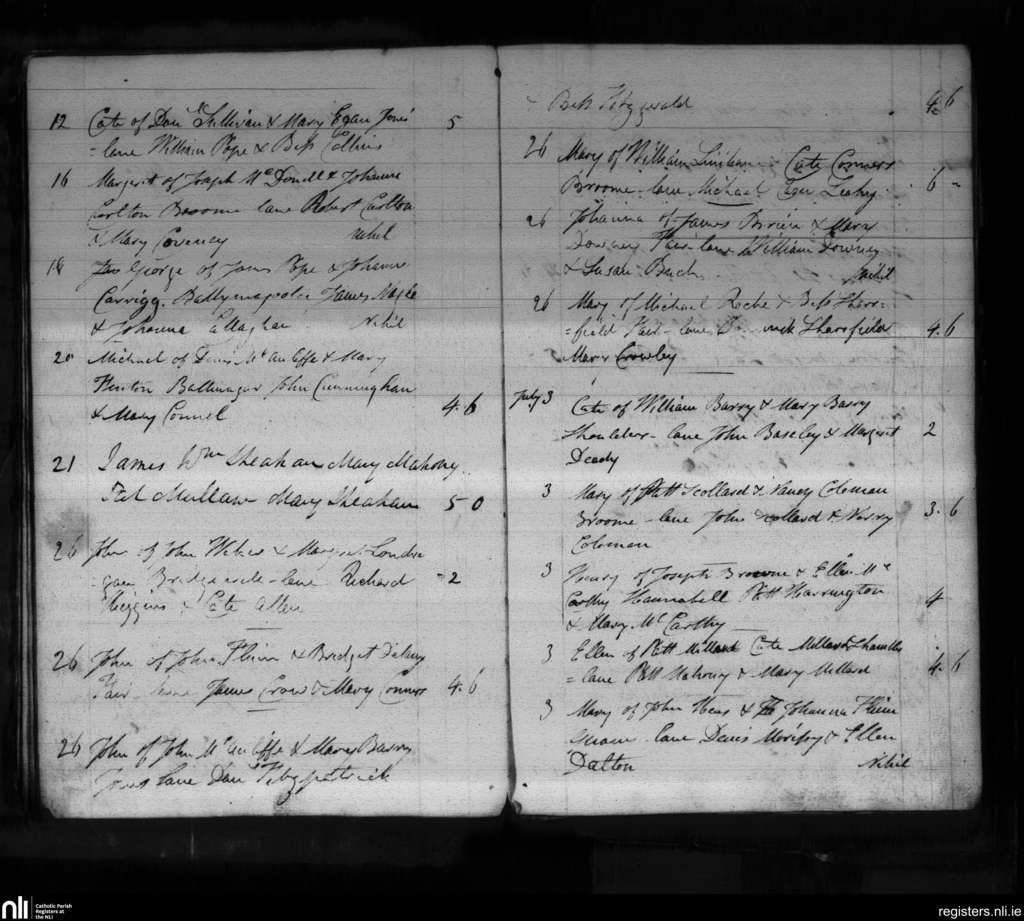 12 Cate of Danl Sullivan & Mary Egan Jones
= lane William Pope & Bess Collins 5
16 Margaret of Joseph Mc Donell & Johanna
Carlton Broome lane Robert Carlton
& Mary Coveney Nihil
18 George of James Pope & Johanna
Carrigg. Ballymagooly James Magee
& Johanna Callaghan Nihil
20 Michael of Denis Mc Auliffe & Mary
Flinton John Cunninghan
& Mary Connel 4. 6
21 James Wm Sheahan Mary Mahony
Pat Mullane Mary Sheahan 5 0
26 John of John & Margaret Londre
= gan lane Richard 2
Higgins & Cate Allen
26 John of John Flinn & Bridget Delany
Fair lane James Crow & Mary Connors 4. 6
26 John of John Mc Auliffe & Mary Barry
Jones lane Danl Fitzpatrick
Bess Fitzgerald 4. 6
26 Mary of William Linihan & Cate Connors
Broome - lane Michael Leahy 6 "
26 Johanna of James Brien & Mary
Downey Fair - lane William Downey
& Susan Nihil
26 Mary of Michael Roche & Bess Sherr=
= field Fair - lane Sherrfield 4. 6
Mary Crowley
July 3 Cate of William Barry & Mary Barry
lane John Baseley & Margaret 2
Deady
3 Mary of Patt Scollard & Nancy Coleman
Broome - lane John Scollard & Norry 3. 6
Coleman
3 Henry of Joseph Browne & Ellen Mc
Carthy Patt Harrington 4
& Mary Mc Carthy
3 Ellen of Patt Millard Cate Millard
= lane Patt Mahony & Mary Millard 4. 6
3 Mary of John Heas & Johanna Flinn
lane Denis & Ellen
Dalton Nihil
nli
Catholic Parish
Registers at
the NLI
registers.nli.ie